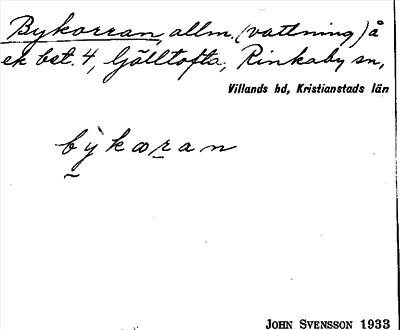 Bykorran, allm. (vattning) å
ek bst. 4, Gälltofta, Rinkaby sn,
Villands hd, Kristianstads län
bỳkꝏran
John Svensson 1933